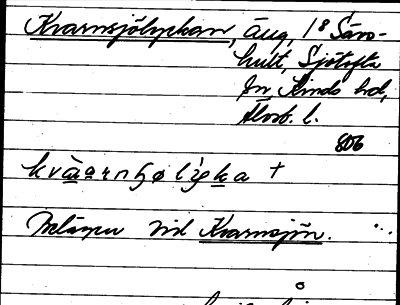 Kvarnsjölyckan, äng, 1/8 Såvs-
hult, Sjötofta
sn, Kinds hd,
Älvsb. l.
806
kvàarnɧøl`yka +
Belägen vid Kvarnsjön.